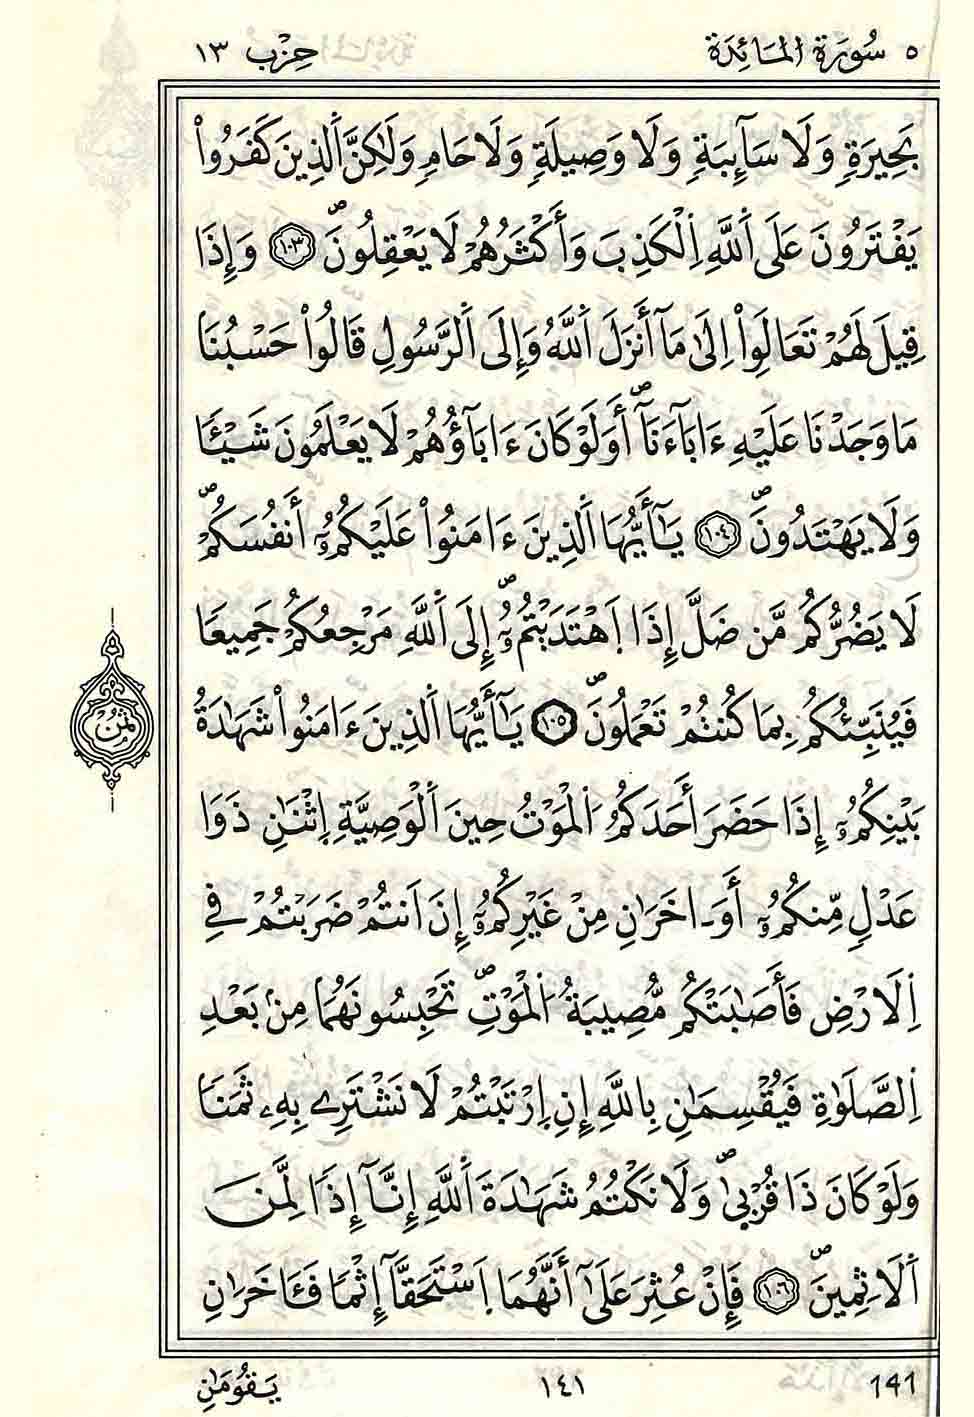 ٥ سُورَةُ الْمَائِدَة حِزْب ١٣
بَحِيرَةٖ وَلَا سَآئِبَةٖ وَلَا وَصِيلَةٖ وَلَا حَامٖ وَلَٰكِنَّ اَ۬لذِينَ كَفَرُواْ
يَفْتَرُونَ عَلَى اَ۬للَّهِ اِ۬لْكَذِبَ وَأَكْثَرُهُمْ لَا يَعْقِلُونَۖ ١٠٣ وَإِذَا
قِيلَ لَهُمْ تَعَالَوِاْ اِلَىٰ مَآ أَنزَلَ اَ۬للَّهُ وَإِلَى اَ۬لرَّسُولِ قَالُواْ حَسْبُنَا
مَا وَجَدْنَا عَلَيْهِ ءَابَآءَنَآۖ أَوَلَوْ كَانَ ءَابَآؤُهُمْ لَا يَعْلَمُونَ شَيْـٔاٗ
وَلَا يَهْتَدُونَۖ ١٠٤ يَٰٓأَيُّهَا اَ۬لذِينَ ءَامَنُواْ عَلَيْكُمُۥٓ أَنفُسَكُمْۖ
لَا يَضُرُّكُم مَّن ضَلَّ إِذَا اَ۪هْتَدَيْتُمُۥٓۖ إِلَى اَ۬للَّهِ مَرْجِعُكُمْ جَمِيعاٗ
فَيُنَبِّئُكُم بِمَا كُنتُمْ تَعْمَلُونَۖ ١٠٥ يَٰٓأَيُّهَا اَ۬لذِينَ ءَامَنُواْ شَهَٰدَةُ
ثُمُن
بَيْنِكُمُۥٓ إِذَا حَضَرَ أَحَدَكُمُ اُ۬لْمَوْتُ حِينَ اَ۬لْوَصِيَّةِ اِ۪ثْنَٰنِ ذَوَا
عَدْلٖ مِّنكُمُۥٓ أَوَ ـ اخَرَٰنِ مِنْ غَيْرِكُمُۥٓ إِنَ اَنتُمْ ضَرَبْتُمْ فِي
اِ۬لَارْضِ فَأَصَٰبَتْكُم مُّصِيبَةُ اُ۬لْمَوْتِۖ تَحْبِسُونَهُمَا مِنۢ بَعْدِ
اِ۬لصَّلَوٰةِ فَيُقْسِمَٰنِ بِاللَّهِ إِنِ اِ۪رْتَبْتُمْ لَا نَشْتَرِے بِهِۦ ثَمَناٗ
وَلَوْ كَانَ ذَا قُرْبَىٰۖ وَلَا نَكْتُمُ شَهَٰدَةَ اَ۬للَّهِ إِنَّآ إِذاٗ لَّمِنَ
اَ۬لَاثِمِينَۖ ١٠٦ فَإِنْ عُثِرَ عَلَىٰٓ أَنَّهُمَا اَ۪سْتَحَقَّآ إِثْماٗ فَـَٔاخَرَٰنِ
يَقُومَٰنِ ١٤١ 141